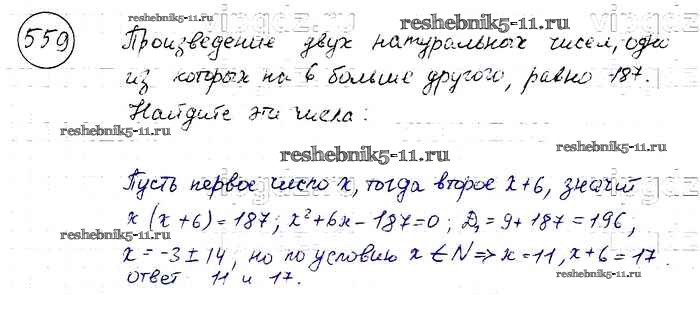 reshebnik5-11.ru
559
Произведение двух натуральных чисел, одно
из которых на 6 больше другого, равно 187.
Найдите эти числа:
reshebnik5-11.ru
reshebnik5-11.ru
reshebnik5-11.ru
Пусть первое число x, тогда второе x+6, значит
x(x+6)=187; x²+6x-187=0; D₁=9+187=196;
reshebnik5-11.ru
x=-3±14, но по условию x∈N⇒x=11, x+6=17.
reshebnik5-11.ru
ответ 11 и 17.